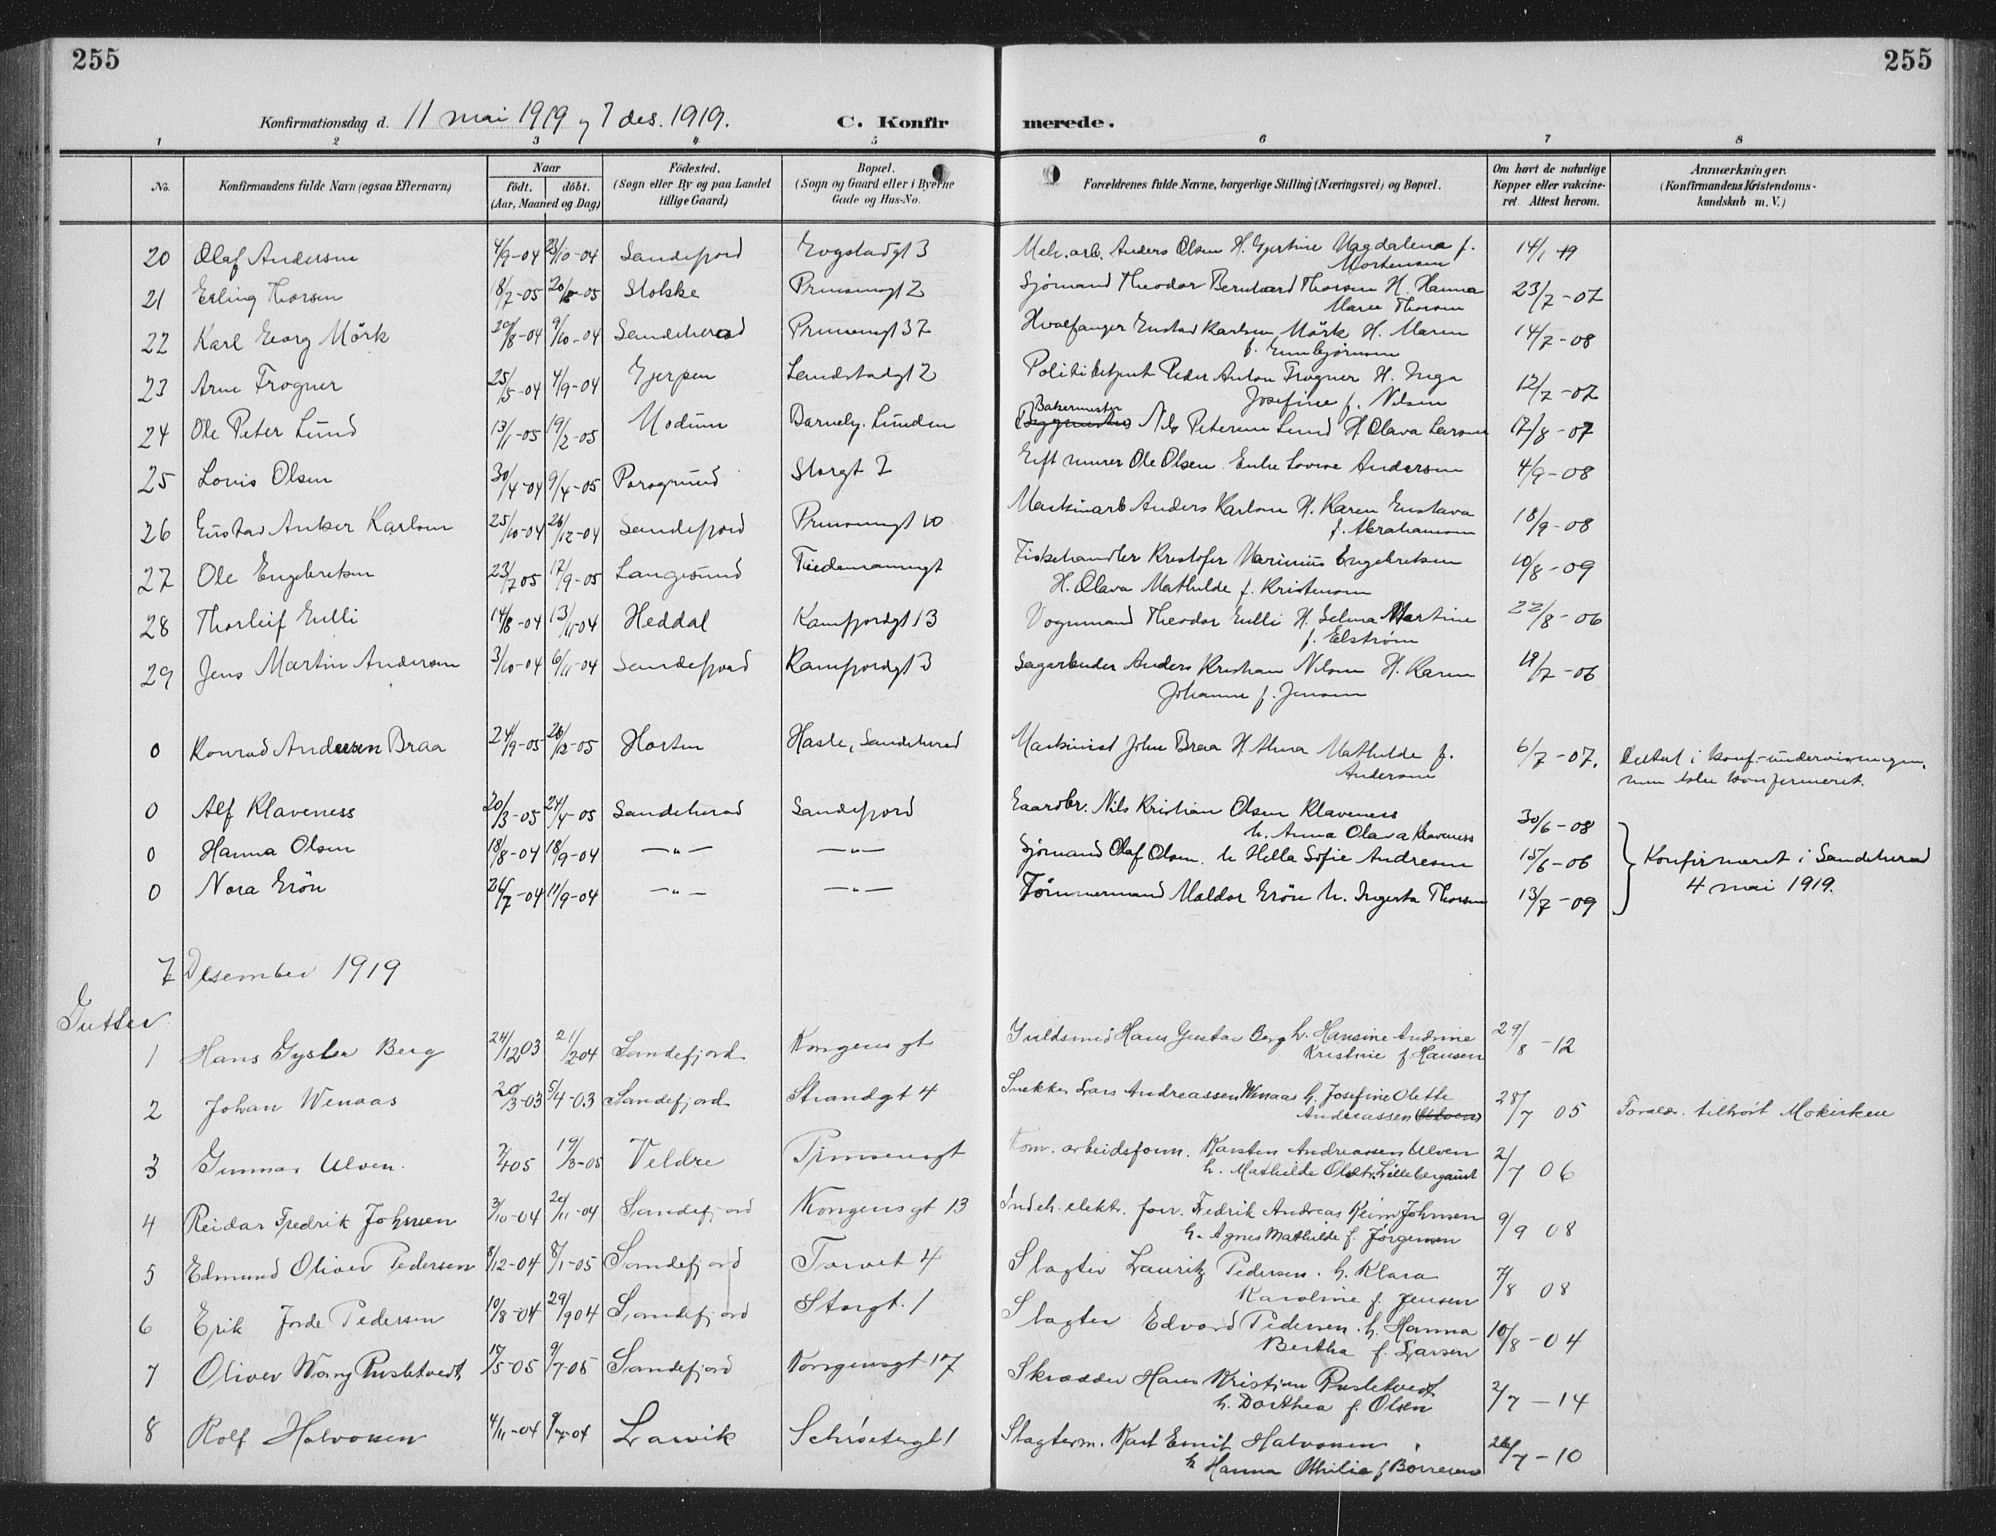 255
255
Konfirmationsdag d. 11 mai 1919 og 7 des. 1919.
C. Konfirmerede.
1 2 3 4 5 6 7 8
No.
Konfirmandens fulde Navn (ogsaa Efternavn)
Naar
født. døbt.
(Aar, Maaned og Dag)
Födested.
(Sogn eller By og paa Landet
tillige Gaard)
Bopæl.
(Sogn og Gaard eller i Byerne
Gade og Hus-No.
Forældrenes fulde Navne, borgerlige Stilling (Næringsvei) og Bopæl.
Om havt de naturlige
Kopper eller vakcine-
ret. Attest herom.
Anmærkninger.
(Konfirmandens Kristendoms-
kundskab m. V.)
20 Olaf Andersen 4/9-04 23/10-04 Sandefjord 3 Mek. arb. Anders Olsen H. Gjertine Magdalena f. 14/1 19
Mortensen
21 Erling Thorsen 8/2-05 Stokke Prinsensgt 2 Sjømand Theodor Bernhard Thorsen H. Hanna 23/7-07
Marie Thorsen
22 Karl Georg Mörk 20/8-04 9/10-04 Sandeherad Prinsensgt 37 Hvalfanger Gustav Karlsen Mörk H. Maren 14/7-08
f.
23 Arne Frogner 25/5-04 4/9-04 Gjerpen Landstadgt 2 Politibetjent Peder Anton Frogner H. Inga 12/7-07
Josefine f. Nilsen
24 Ole Peter Lund 13/1-05 19/2-05 Modum Barnehj. Lunden Bakermester Nils Petersen Lund H. Olava Larsen 17/8-07
25 Louis Olsen 30/4-04 9/4-05 Porsgrund Storgt 2 Gift murer Ole Olsen. Enke Lovise Andersen 4/9-08
26 Gustav Anker Karlsen 25/10-04 26/12-04 Sandefjord Prinsensgt 10 Maskinarb Anders Karlsen H. Karen Gustava 18/9-08
f. Abrahamsen
27 Ole Engebretsen 23/7 05 17/9-05 Langesund Tiedemannsgt Fiskehandler Kristofer Marinius Engebretsen 10/8-09
H. Olava Mathilde f. Kristensen
28 Thorleif Gulli 14/8-04 13/11-04 Heddal Kamfjordgt 13 Vognmand Theodor Gulli H. Selma Martine 22/8-06
f. Elstrøm
29 Jens Martin Andersen 3/10-04 6/11-04 Sandefjord Kamfjordgt 3 Sagarbeider Anders Kristian Nilsen H. Karen 19/7-06
Johanne f. Jensen
0 Konrad Andersen Braa 24/9-05 26/12-05 Horten Hasle, Sandeherad Maskinist John Braa H. Alma Mathilde f. 6/7-07. Deltat i konf.-undervisningen,
Andersen men ikke konfirmeret.
0 Alf Klaveness 20/3-05 24/4-05 Sandeherad Sandefjord Gaardbr. Nils Kristian Olsen Klaveness 30/6-08
h. Anna Olava Klaveness
0 Hanna Olsen 18/8-04 18/9-04 —"— —"— Sjømand Olaf Olsen. h Hella Sofie Andresen 15/6-06 Konfirmeret i Sandeherad
0 Nora Grön 26/7-04 11/9-04 —"— —"— Tömmermand Haldor Grön h. Ingerta Thorsen 13/7-09 4 mai 1919.
7 Desember 1919
Gutter
1 Hans Gysler Berg 24/12 03 21/2 04 Sandefjord Kongensgt Guldsmed Hans Gustav Berg h. Hansine Andrine 29/8-12
Kristine f Hansen
2 Johan Wenaas 20/3-03 5/4-03 Sandefjord Strandgt 4 Snekker Lars Andreassen Wenaas h. Josefine Olette 28/7 05 Foræl. tilhört Mokirken
Andreassen
3 Gunnar Ulven 7/1 05 19/3-05 Veldre Prinsensgt Kom. arbeidsform. Karsten Andreassen Ulven 2/7 06
h. Mathilde
4 Reidar Fredrik Johnsen 3/10-04 20/11-04 Sandefjord Kongensgt 13 Indeh. elekt. forr. Fredrik Andreas Keim Johnsen 9/9 08
h. Agnes Mathilde f. Jørgensen
5 Edmund Oliver Pedersen 8/12-04 8/1-05 Sandefjord Torvet 4 Slagter Lauritz Pedersen. h. Klara 7/8 08
Karoline f. Jensen
6 Erik Jorde Pedersen 10/8-04 29/9 04 Sandefjord Storgt. 1 Slagter Edvard Pedersen. h. Hanna 10/8-04
Bertha f. Larsen
7 Oliver Wang Rusletvedt 17/5-05 9/7-05 Sandefjord Kongensgt 17 Skrædder Hans Kristian Rusletvedt 2/7-14
h. Dorthea f. Olsen
8 Rolf Halvorsen 4/11-04 Larvik Schrøtersgt 1 Slagterm. Karl Emil Halvorsen 26/7-10
h Hanna Othilie f Borresen